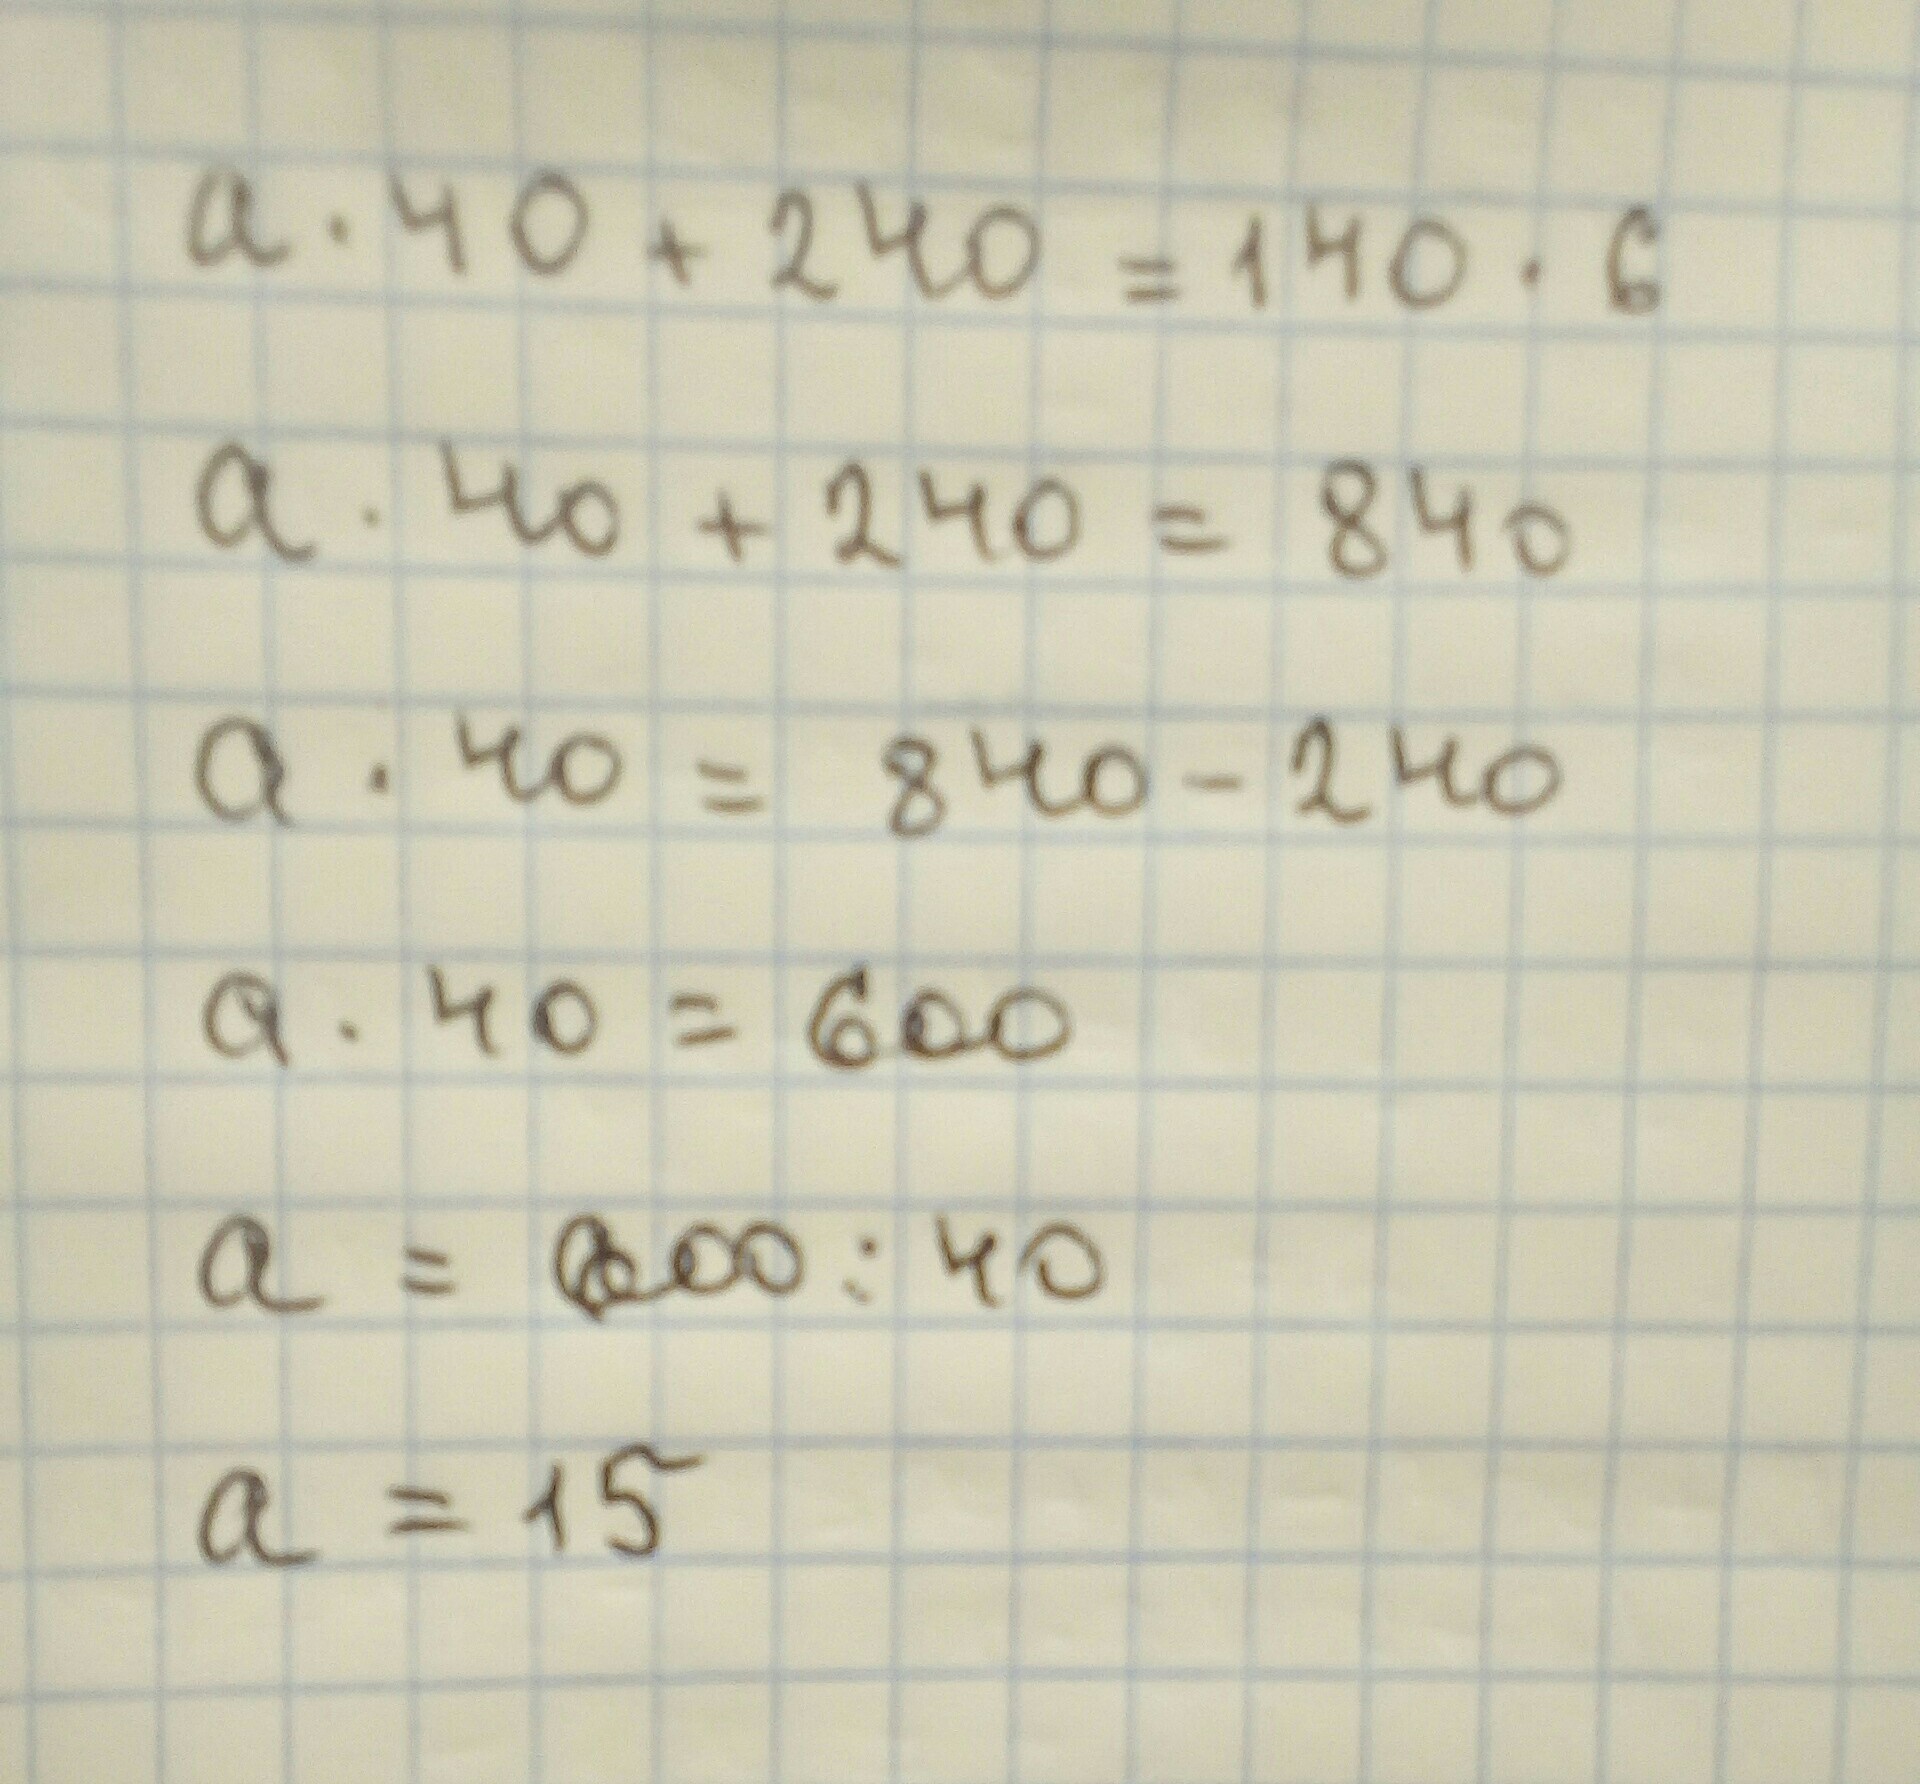 a · 40 + 240 = 140 · 6
a · 40 + 240 = 840
a · 40 = 840 - 240
a · 40 = 600
a = 600 : 40
a = 15